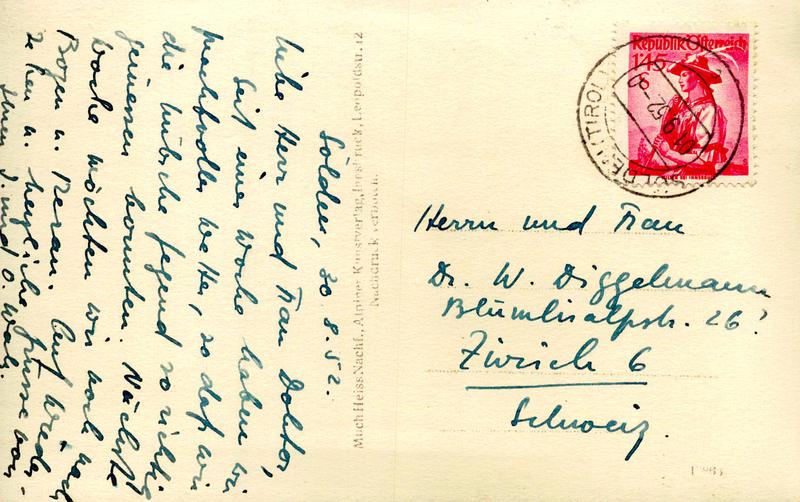 Sölden, 30.8.52.
Liebe Herr und Frau Doktor,
Seit einer Woche haben wir
prachtvolles Wetter, so daß wir
die hübsche Gegend so richtig
geniessen konnten. Nächste
Woche möchten wir noch nach
Bozen u. Meran. Auf Wieder-
sehen u. herzliche Grüsse von
Ihren J. und O.
Much Heiss Nachf., Alpiner Kunstverlag, Innsbruck, Leopoldstr. 12
Nachdruck verboten.
Republik Österreich
1'45
(TIROL)
52-8
Herrn und Frau
Dr. W. Diggelmann
Blümlisalpstr. 26
Zürich 6
Schweiz.